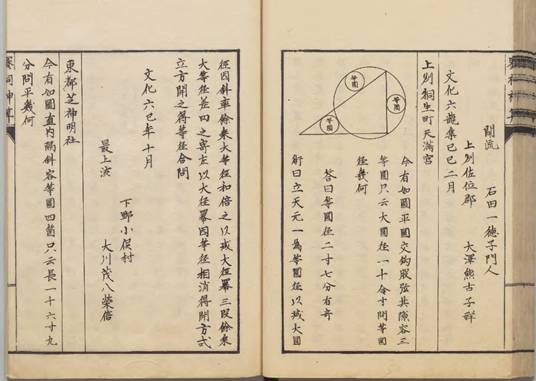 關流　石田一徳子門人
上刕佐位郡　大澤熊吉子群
文化六龍集己巳二月
上刕桐生町天満宮
今有如圖平圓交鈎股弦其隙容三
等圓只云大圓径一十令寸問等圓
径幾何
答曰等圓径二寸七分有奇
術曰立天元一為等圓径以減大圓
等圓
等圓
等圓
径因斜率餘乗大等径和倍之以減大径冪三段餘乗
大等径差四之寄左以大径冪因等径相消得開方式
立方開之得等径合問
文化六巳年十月
下野小俣村
最上流　大川茂八榮信
東都芝神明社
今有如圖直内隔斜容等圓四箇只云長一十六寸九
分問平幾何